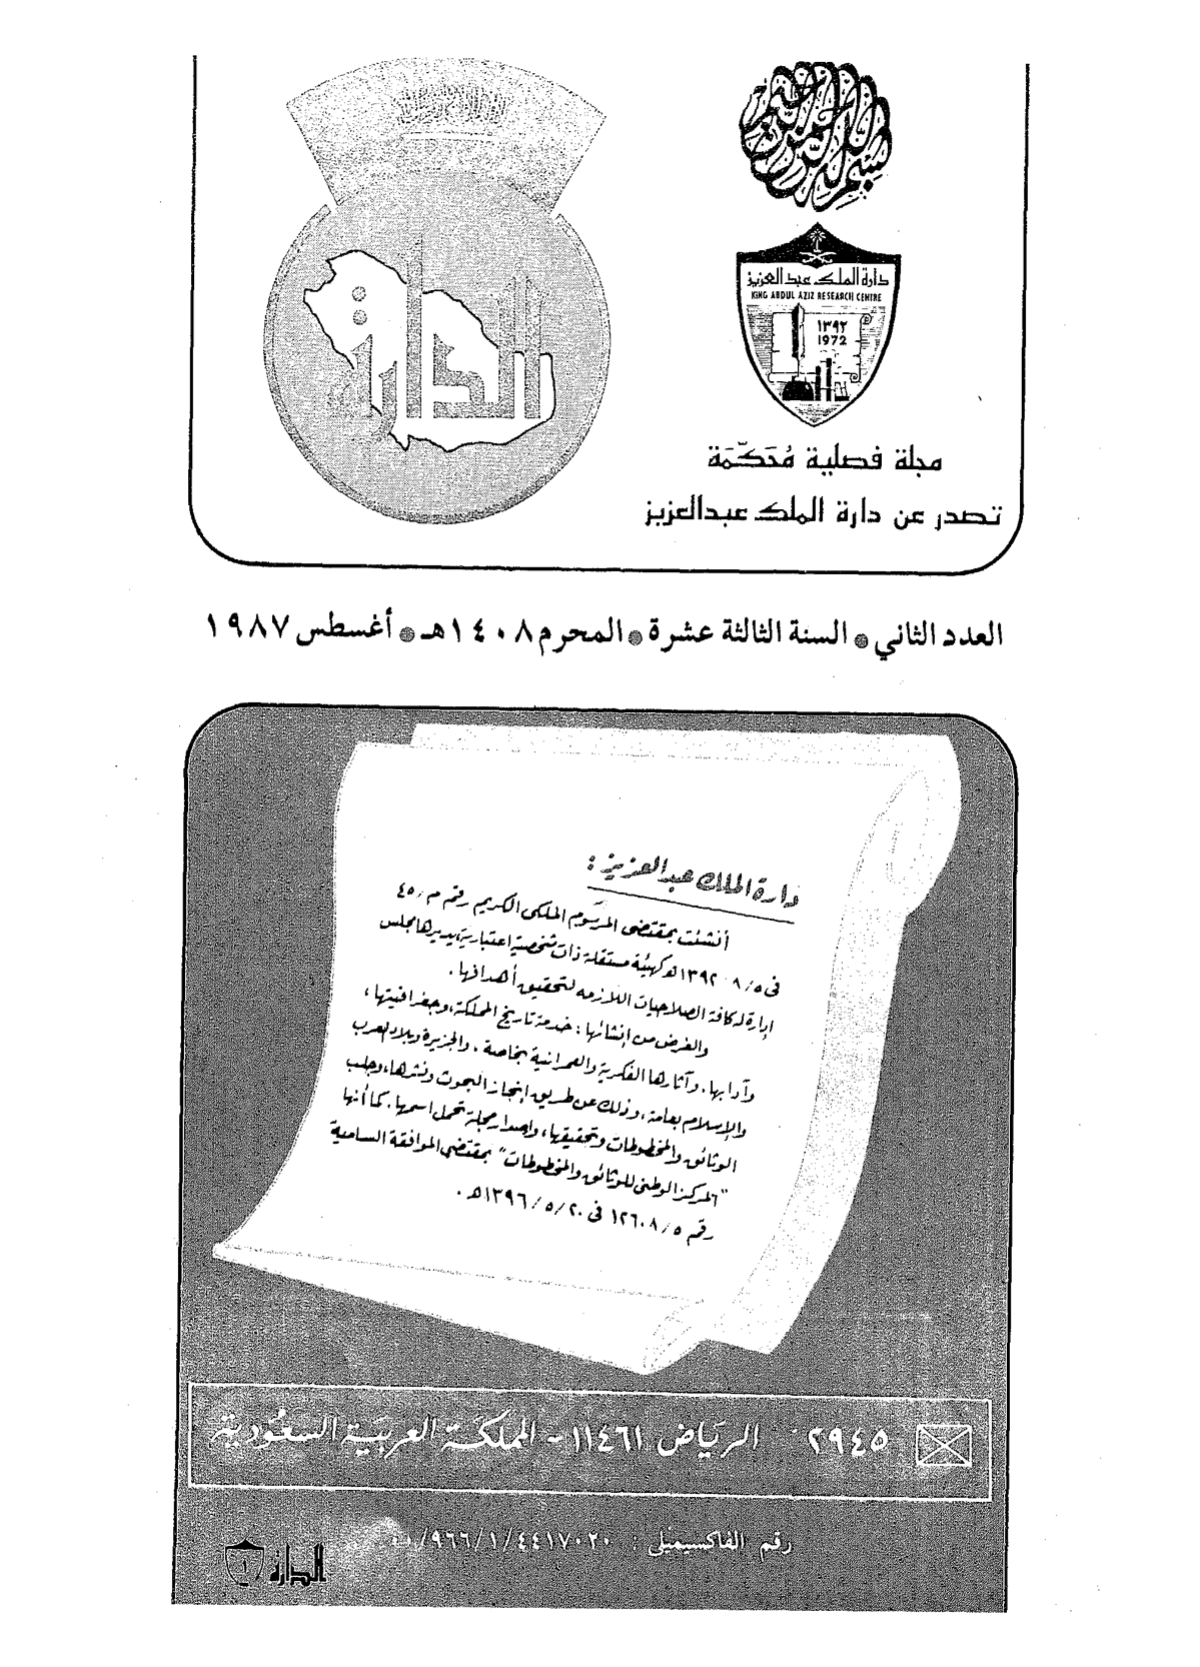 بسم الله الرحمن الرحيم
دارة الملك عبد العزيز
KING ABDUL AZIZ RESEARCH CENTRE
١٣٩٢
1972
الدارة
مجلة فصلية مُحَكّمَة
تصدر عن دارة الملك عبدالعزيز
العدد الثاني • السنة الثالثة عشرة • المحرم ١٤٠٨هـ • أغسطس ١٩٨٧
دارة الملك عبدالعزيز :
أنشئت بمقتضى المرسوم الملكي الكريم رقم م / ٤٥
في ٥ / ٨ / ١٣٩٢هـ كهيئة مستقلة ذات شخصية اعتبارية، يديرها مجلس
إدارة له كافة الصلاحيات اللازمه لتحقيق أهدافها .
والغرض من إنشائها : خدمة تاريخ المملكة، وجغرافيتها،
وآدابها، وآثارها الفكرية والعمرانية بخاصة، والجزيرة وبلاد العرب
والإسلام بعامة، وذلك عن طريق إنجاز البحوث ونشرها، وجلب
الوثائق والمخطوطات وتحقيقها، وإصدار مجلة تحمل اسمها. كما أنها
"المركز الوطني للوثائق والمخطوطات" بمقتضى الموافقة السامية
رقم ٥ / ١٢٦٠٨ في ٢٠ / ٥ / ١٣٩٦هـ .
٢٩٤٥ الرياض ١١٤٦١ - المملكة العربية السعودية
رقم الفاكسيميلي : ٤٤١٧٠٢٠/١/٩٦٦/
الدارة ١